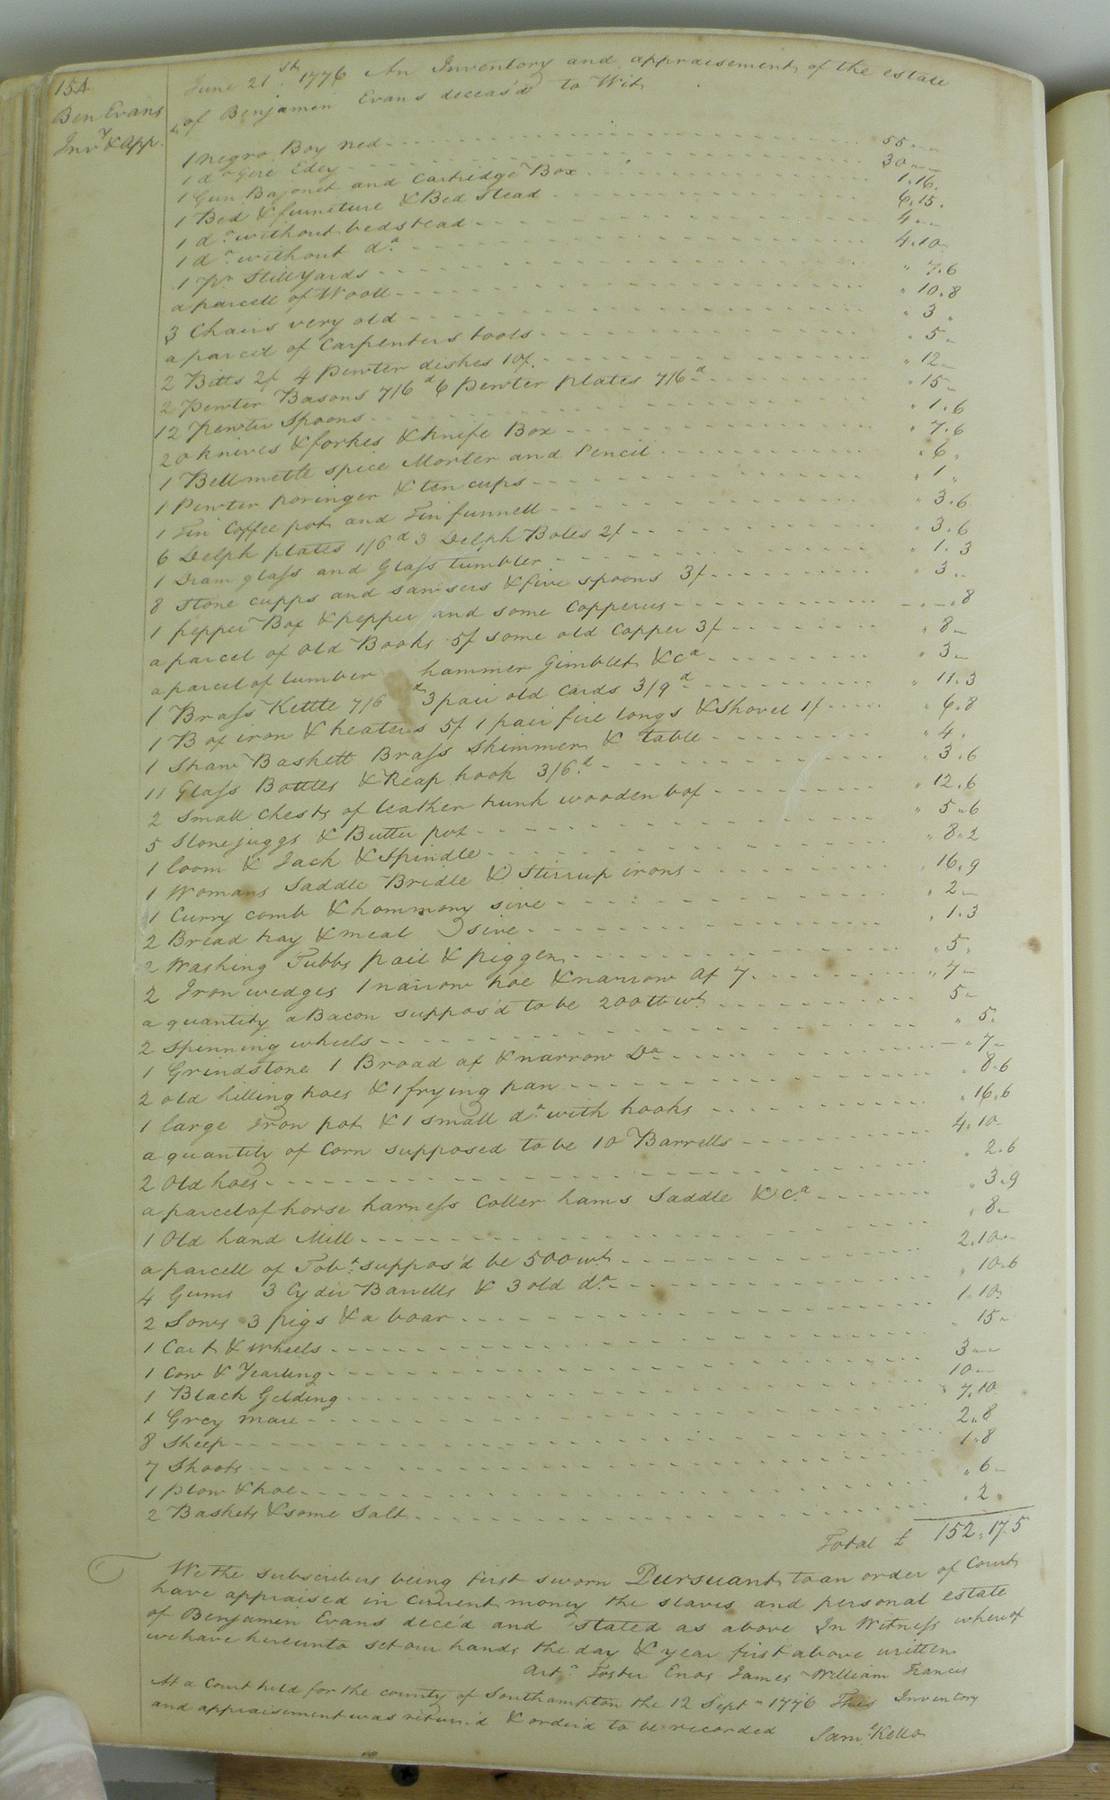 154
Ben Evans
Invy & App.
June 21st 1776 An Inventory and appraisement of the estate
of Benjamen Evans deceas'd to Wit
1 negro Boy Ned 55 " "
1 do Gere Edey 30 " "
1 Gun Bajonet and Cartridge Box 1.16.
1 Bed & furniture & Bed Stead 6.15.
1 do without bedstead 4 " "
1 do without do 4.10.
1 pr Stillyards " 7.6
a parcell of Wooll " 10.8
3 Chairs very old " 3 "
a parcel of Carpenters tools " 5 "
2 Bitts 2/ 4 Pewter dishes 10/ " 12 "
2 Pewter Basons 7/6d 6 pewter plates 7/6d " 15 "
12 Pewter Spoons " 1.6
20 knives & forkes & knife Box " 7.6
1 Bellmettle spice Morter and Pencil " 6 "
1 Pewter poringer & ten cups " 1 "
1 Tin Coffee pot and Tin funnell " 3.6
6 Delph plates 1/6d 3 Delph Boles 2/ " 3.6
1 Dram glass and Glass tumbler " 1.3
8 Stone cupps and sawsers & five spoons 3/ " 3 "
1 pepper Box & pepper and some Copperus " " 8
a parcel of old Books 5/ some old Copper 3/ " 8 "
a parcel of lumber hammer Gimblet &ca " 3 "
1 Brass Kettle 7/6d 3 pair old Cards 3/9d " 11.3
1 Box iron & heaters 5/ 1 pair fire tongs & Shovel 1/ " 6.8
1 Straw Baskett Brass Skimmer & table " 4 "
11 Glass Bottles & Reap hook 3/6d " 3.6
2 small Chests of leather trunk wooden box " 12.6
5 Stone juggs & Butter pot " 5.6
1 loom & Jack & Spindle " 8.2
1 Womans Saddle Bredle & Stirrup irons " 16.9
1 Curry comb & hommony sive " 2 "
2 Bread tray & meal sive " 1.3
2 Washing Tubbs pail & piggen " 5 "
2 Iron wedges 1 narrow hoe & narrow ax 7 " 7 "
a quantity a Bacon suppos'd to be 200tt wt 5 "
2 Spinning wheels " 5 "
1 Grindstone 1 Broad ax & narrow Do " 7 "
2 old hilling hoes & 1 frying pan " 8.6
1 large Iron pot & 1 small do with hooks " 16.6
a quantity of Corn supposed to be 10 Barrells 4.10
2 Old hoes " 2.6
a parcel of horse harness Coller hams Saddle &ca " 3.9
1 Old hand Mill " 8 "
a parcell of Tobo suppos'd be 500 wt 2.10 "
4 Gums 3 Cyder Barrells & 3 old do " 10.6
2 Sows 3 pigs & a boar 1.10.
1 Cart & wheels " 15 "
1 Cow & Yearling 3 " "
1 Black Gelding 10 "
1 Grey mare 7.10
8 Sheep 2.8
7 Shoats 1.8
1 plow & hoe " 6 "
2 Baskets & some Salt " 2 "
Total £ 152.17.5
We the subscribers being first sworn Pursuant to an order of Court
have appraised in current money the slaves and personal estate
of Benjamen Evans dece'd and stated as above In Witness whereof
we have hereunto set our hands the day & year first above written
Arto Foster Enos James William Francis
At a Court held for the county of Southampton the 12 Septr 1776 This Inventory
and appraisement was return'd & order'd to be recorded Saml Kello